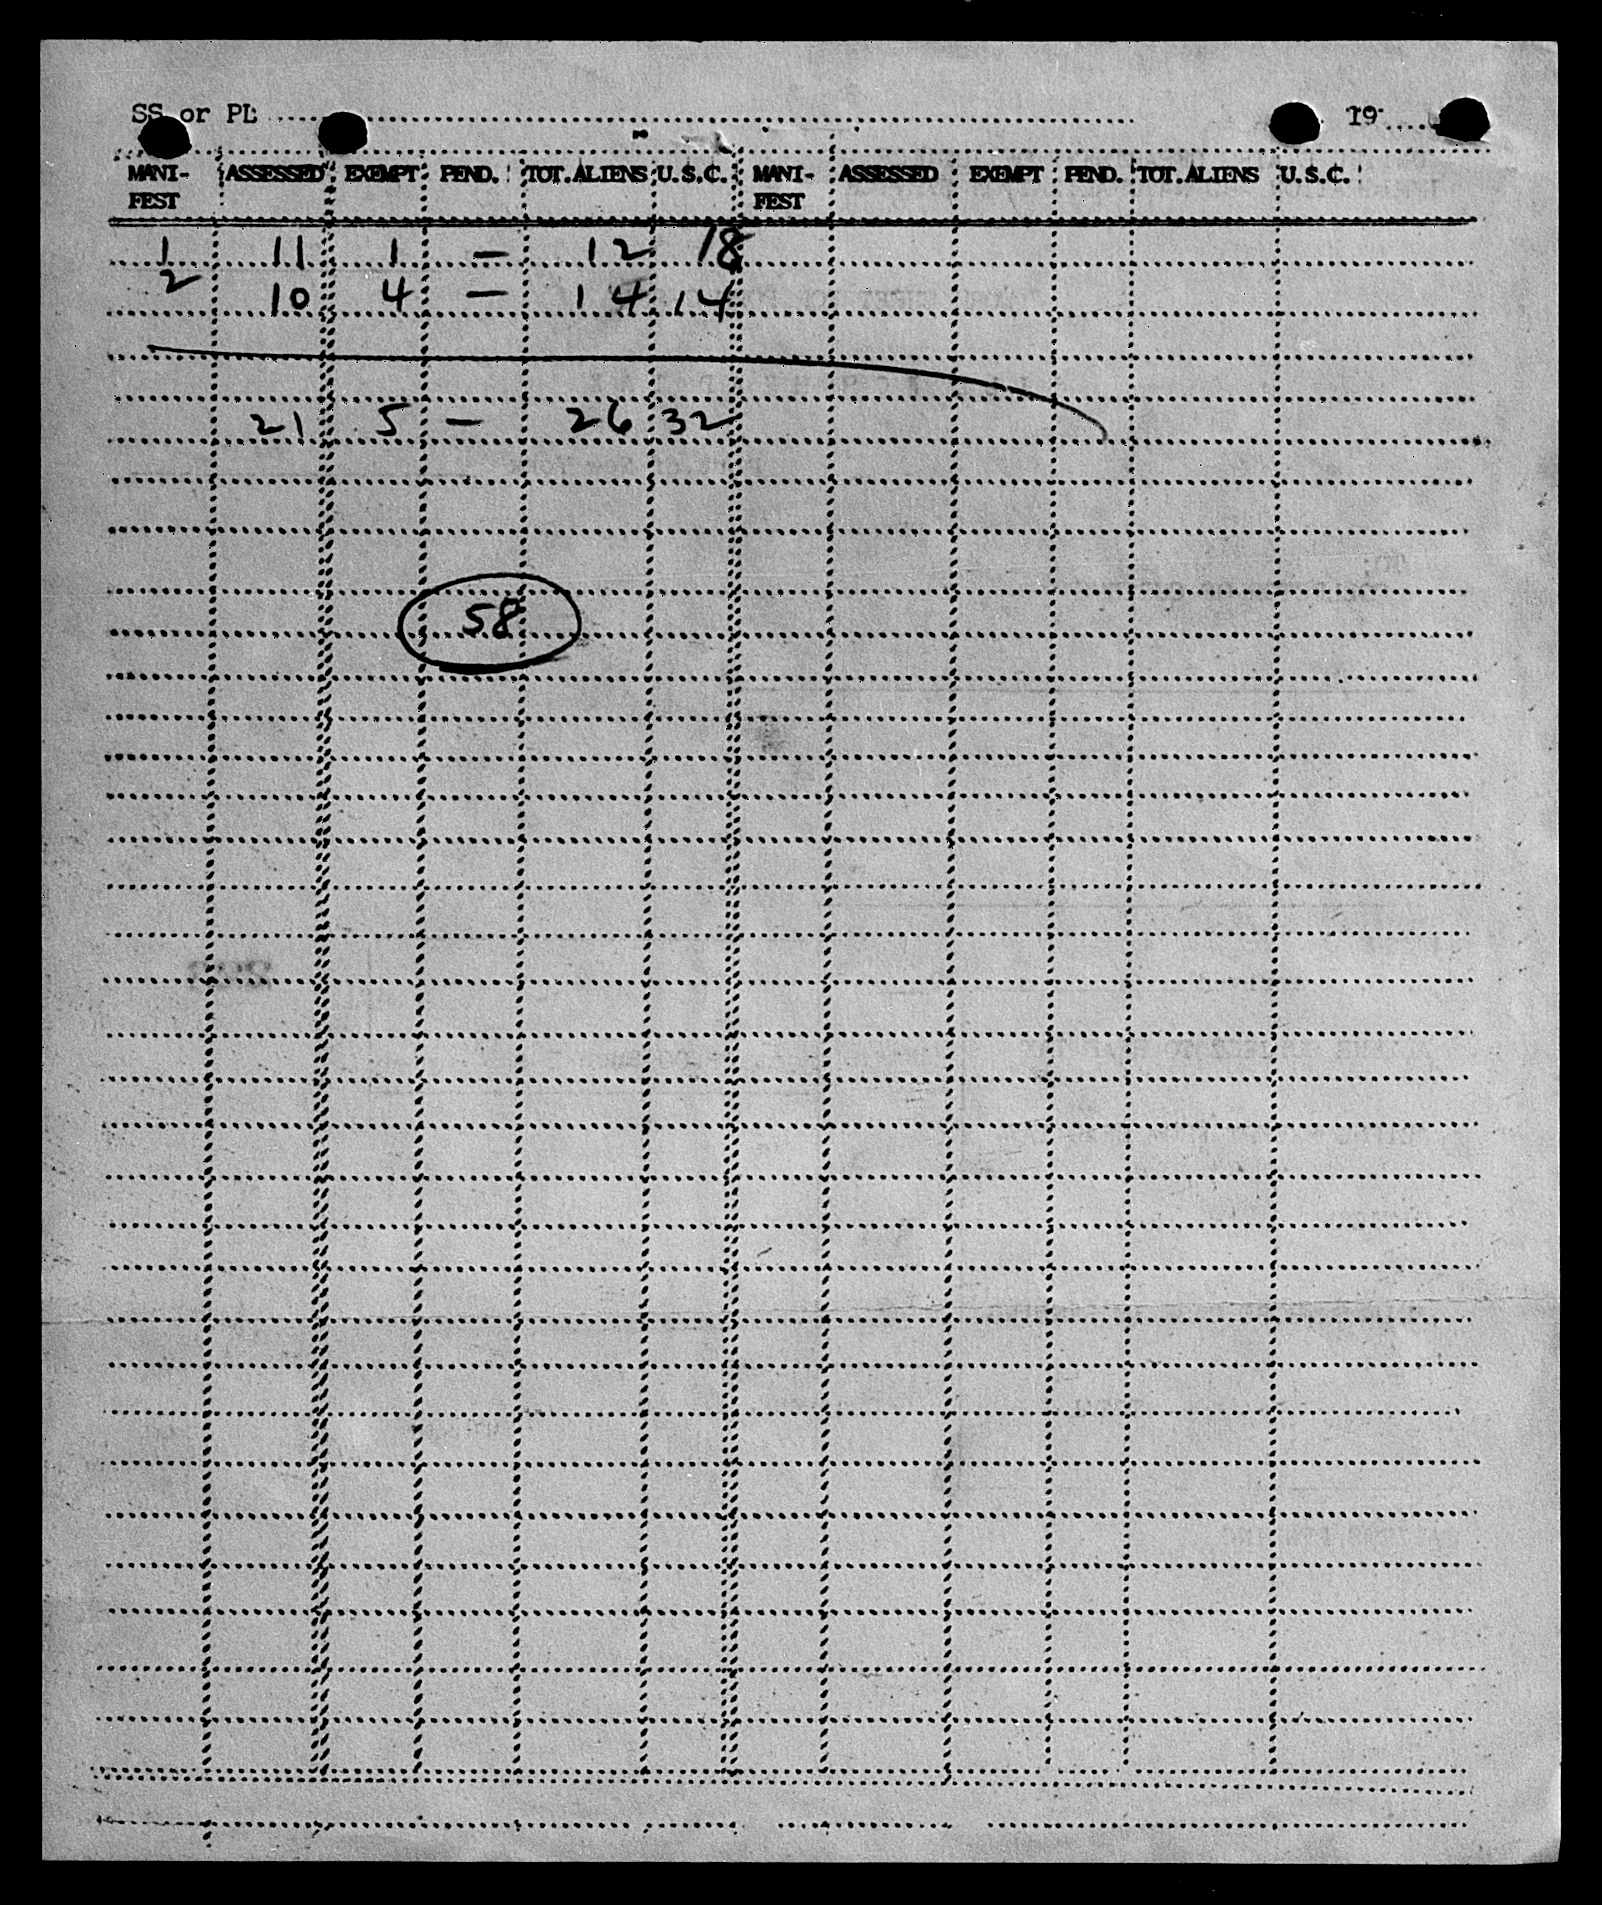 SS or PL 19
MANI- ASSESSED EXEMPT PEND. TOT.ALIENS U.S.C. MANI- ASSESSED EXEMPT PEND. TOT.ALIENS U.S.C.
FEST FEST
1 11 1 — 12 18
2 10 4 — 14 14
21 5 — 26 32
58